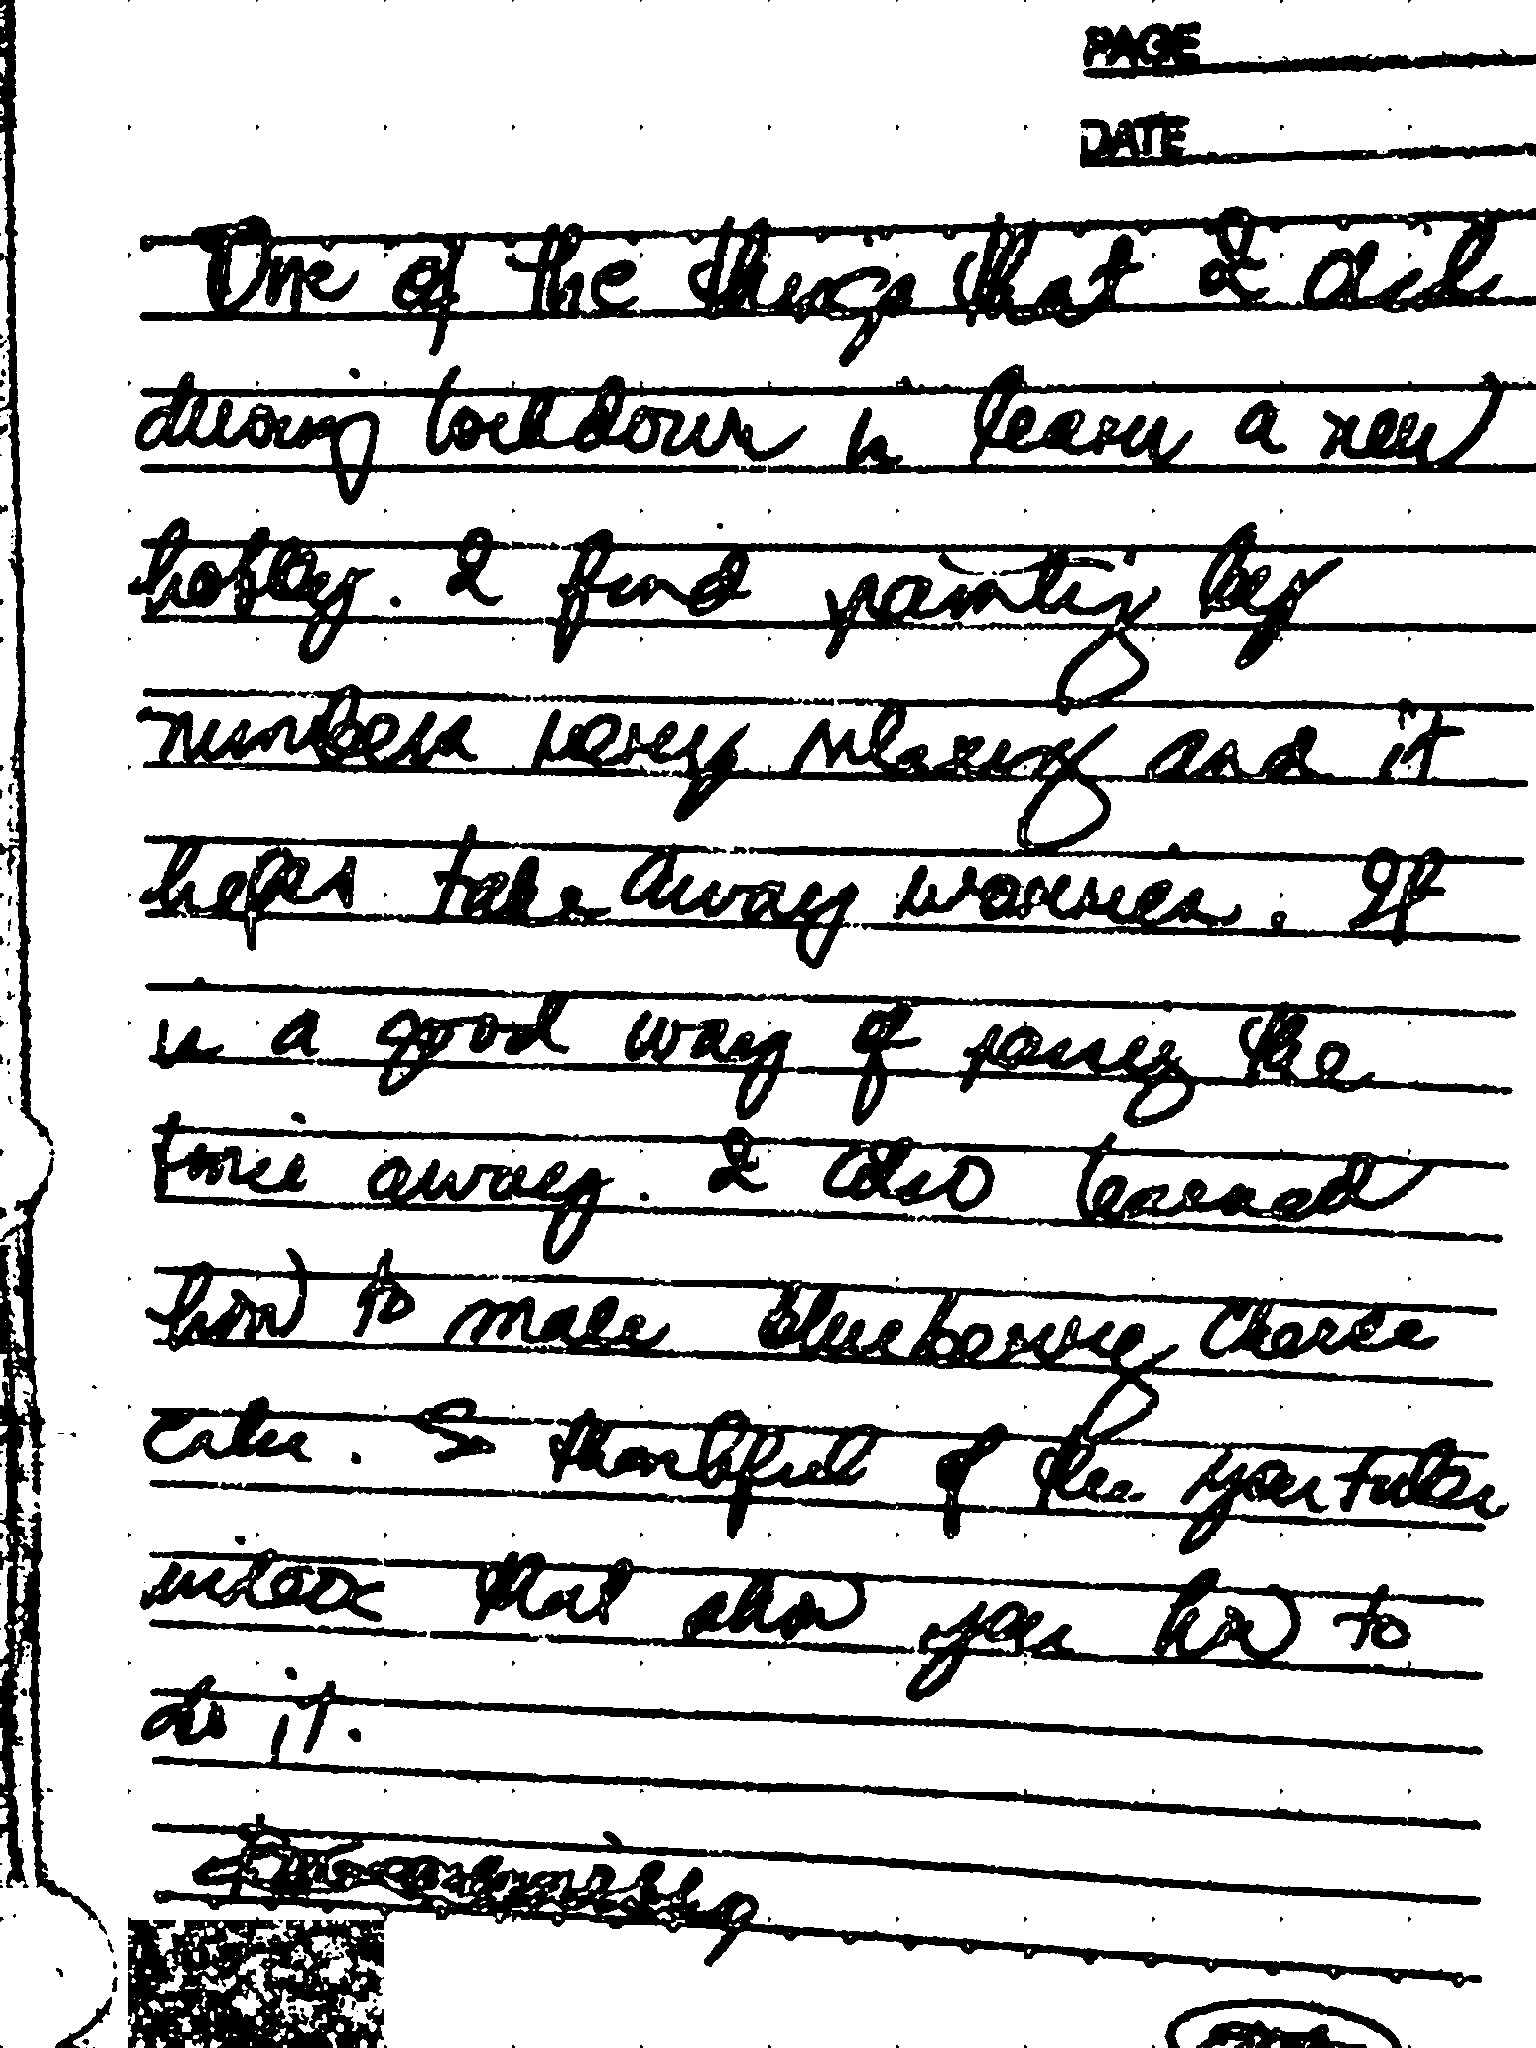 PAGE
DATE
One of the things that I did
during lockdown is learn a new
hobby. I find painting by
numbers very relaxing and it
helps take away worries. It
is a good way of passing the
time away. I also learned
how to make blueberry cheese
cake. So thankful of the youtube
videos that show you how to
do it.